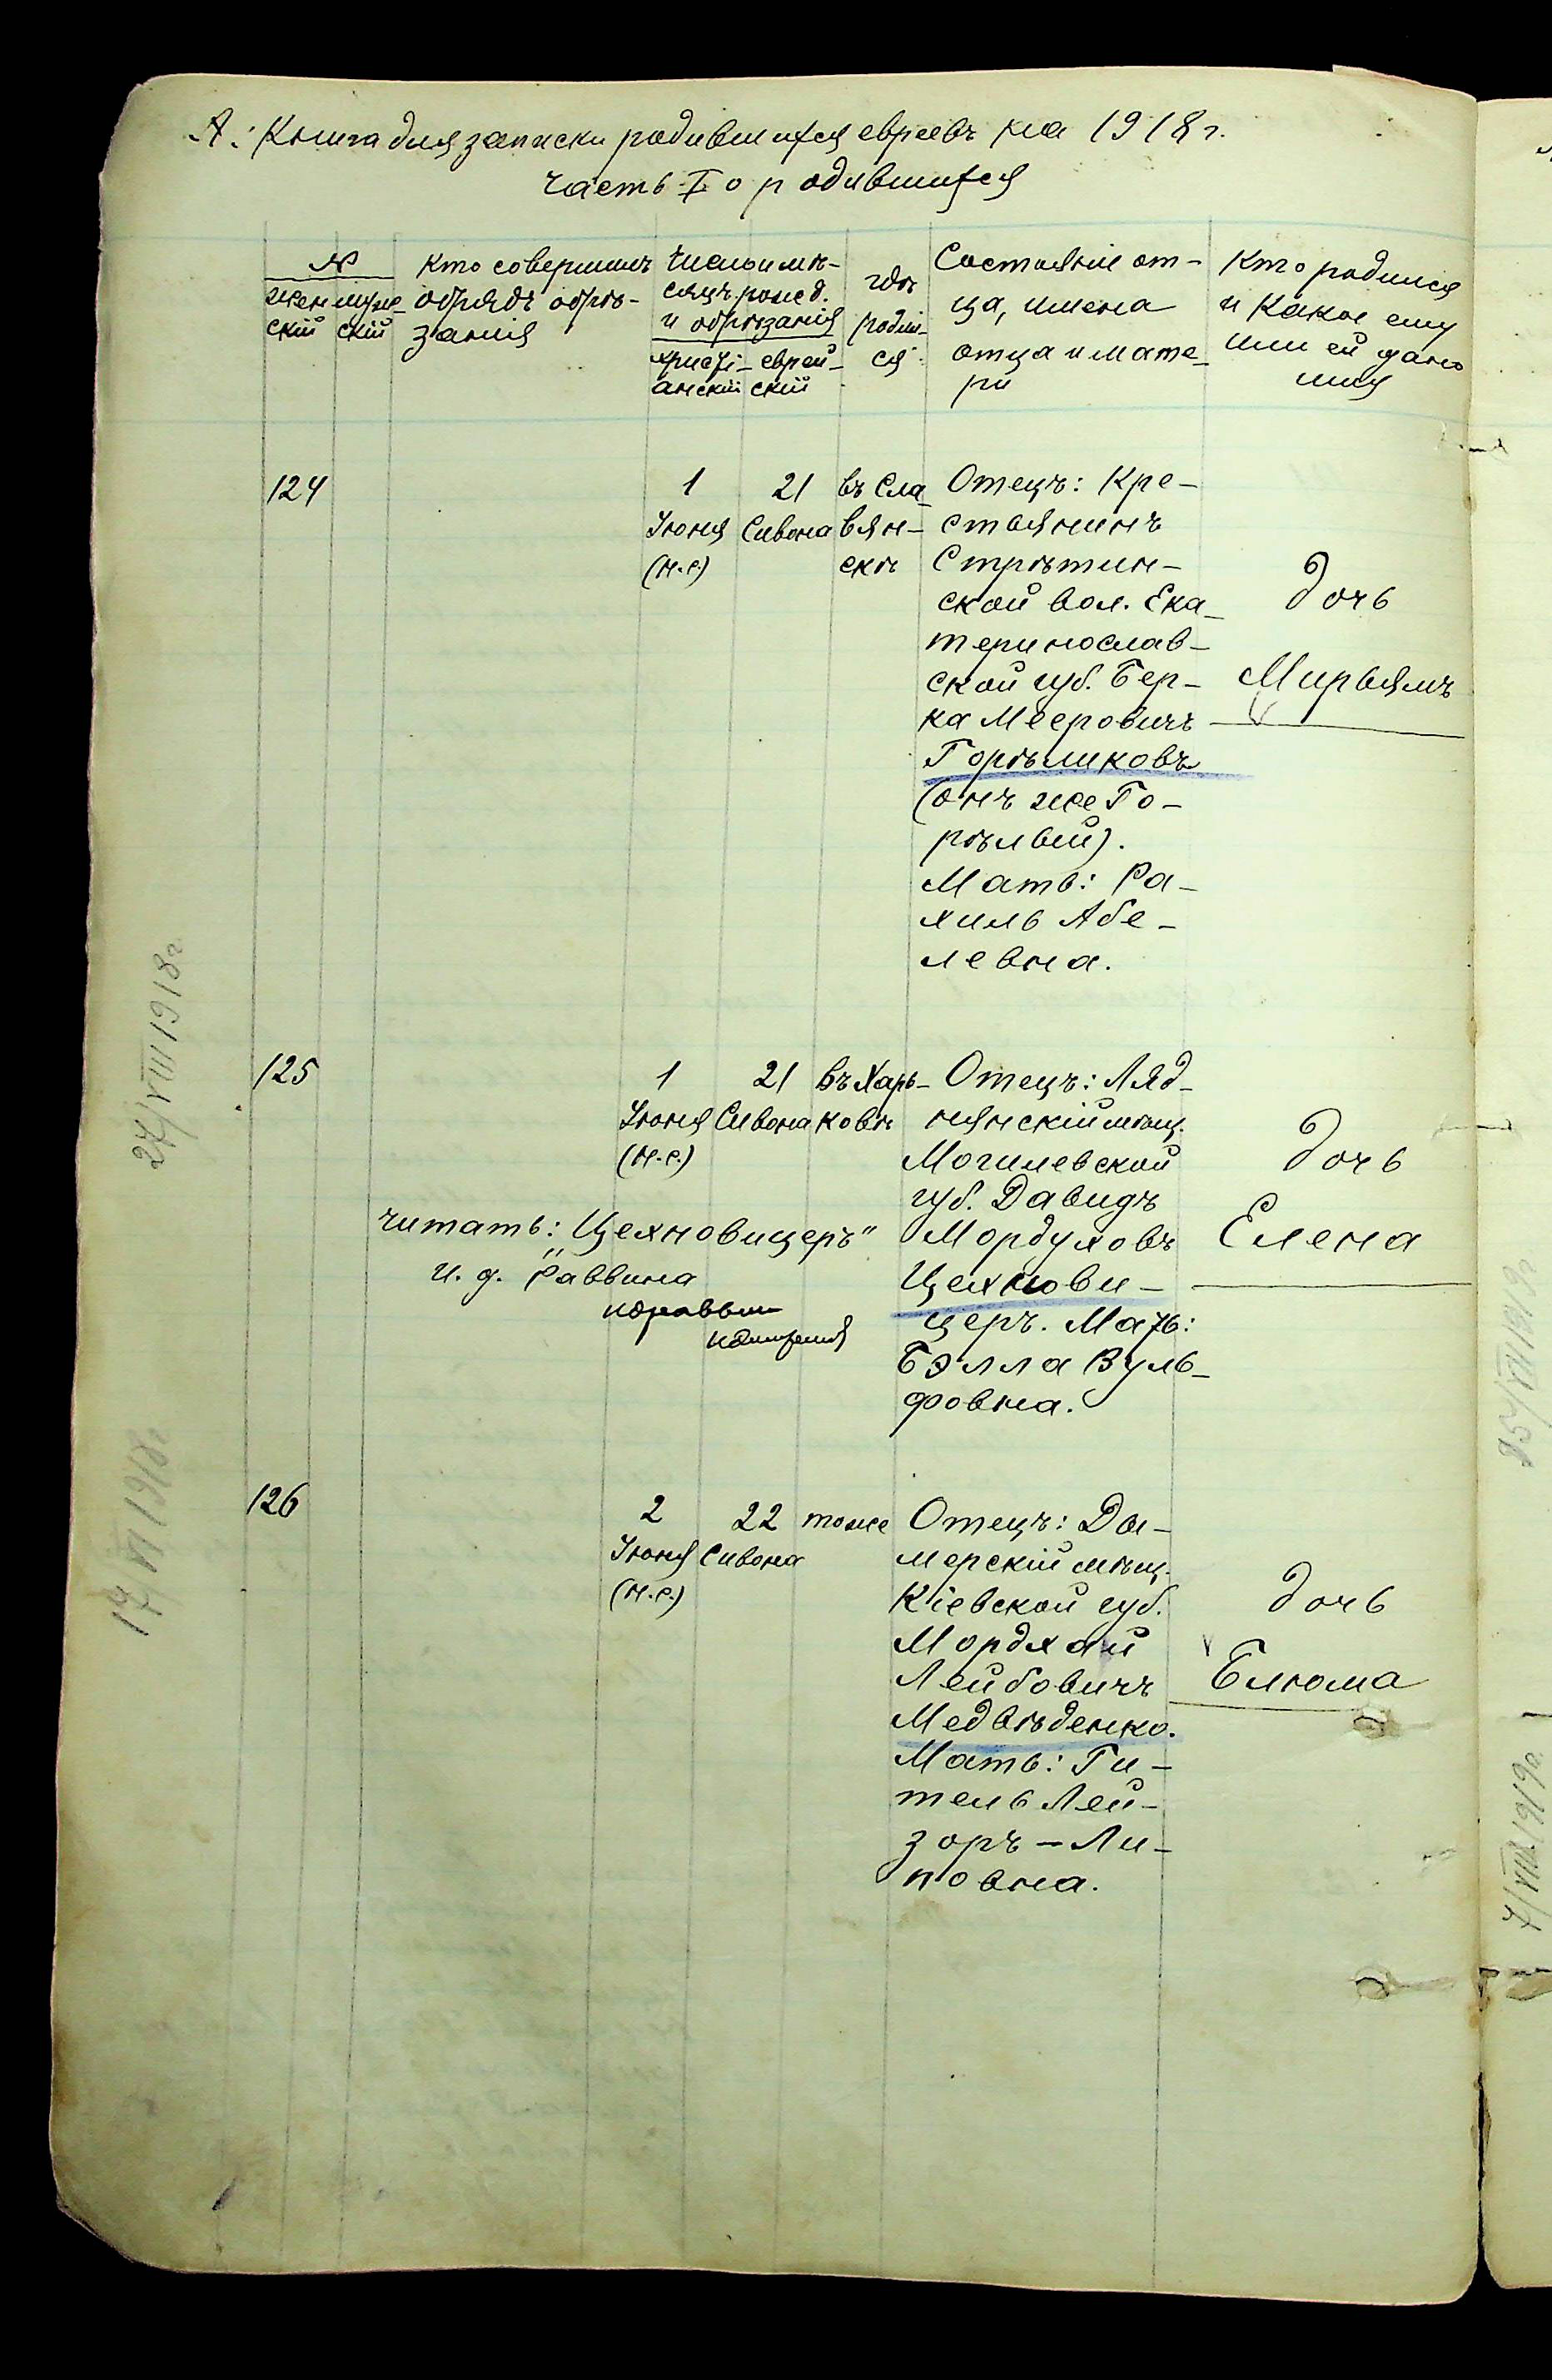 А: Книга для записки родившихся евреевъ на 1918 г.
часть I о родившихся
№
женскій
мужескій
Кто совершилъ
обрядъ обрѣ-
занія
Число и мѣ-
сяцъ рожд.
и обрѣзанія
христі-
анскій
еврей-
скій
гдѣ
родил-
ся
Состояніе от-
ца, имена
отца и мате-
ри
Кто родился
и какое ему
или ей дано
имя
124
1
Іюня
(н.с.)
21
Сивона
въ Сла-
вян-
скѣ
Отецъ: Кре-
стьянинъ
Стрѣтин-
ской вол. Ека-
теринослав-
ской губ. Бер-
ка Мееровичъ
Горѣликовъ
(онъ же Го-
рѣлвий).
Мать: Ра-
хиль Абе-
левна.
дочь
Мирьямъ
125
1
Іюня
(н.с.)
21
Сивона
въ Харь-
ковѣ
Отецъ: Ляд-
нянскій мѣщ.
Могилевской
губ. Давидъ
Мордуховъ
Цехнови-
церъ. Мать:
Бэлла Вуль-
фовна.
дочь
Елена
читать: „Цехновицеръ"
И. д. Раввина
126
2
Іюня
(н.с.)
22
Сивона
тоже
Отецъ: Ды-
мерскій мѣщ.
Кіевской губ.
Мордхай
Лейбовичъ
Медвѣденко.
Мать: Ги-
тель Лей-
зоръ-Ли-
повна.
дочь
Блюма
27/VIII 1918 г.
17/VI 1918 г
25/XII 1919 г
7/VIII 1919 г.